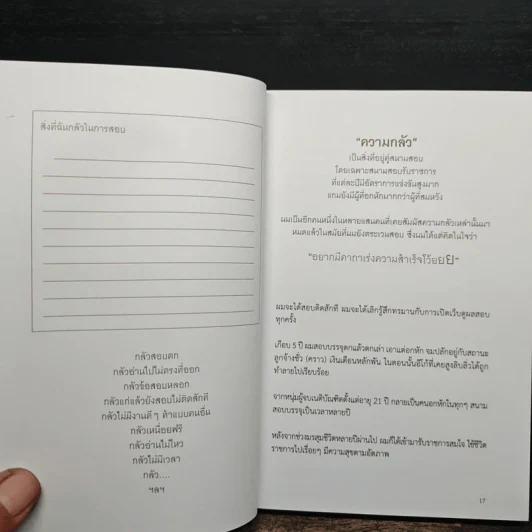 สิ่งที่ฉันกลัวในการสอบ
กลัวสอบตก
กลัวอ่านไปไม่ตรงที่ออก
กลัวข้อสอบหลอก
กลัวแก่แล้วยังสอบไม่ติดสักที
กลัวไม่มีงานดี ๆ ทำแบบคนอื่น
กลัวเหนื่อยฟรี
กลัวอ่านไม่ไหว
กลัวไม่มีเวลา
กลัว....
ฯลฯ
"ความกลัว"
เป็นสิ่งที่อยู่คู่สนามสอบ
โดยเฉพาะสนามสอบรับราชการ
ที่แต่ละปีมีอัตราการแข่งขันสูงมาก
แถมยังมีผู้ที่อกหักมากกว่าผู้ที่สมหวัง
ผมเป็นอีกคนหนึ่งในหลายแสนคนที่เคยสัมผัสความกลัวเหล่านั้นมา
หมดแล้วในสมัยที่ผมยังตระเวนสอบ ซึ่งผมได้แต่คิดในใจว่า
"อยากมีคาถาเร่งความสำเร็จโว้ยยย"
ผมจะได้สอบติดสักที ผมจะได้เลิกรู้สึกทรมานกับการเปิดเว็บดูผลสอบ
ทุกครั้ง
เกือบ 5 ปี ผมสอบบรรจุตกแล้วตกเล่า เอาแต่อกหัก จมปลักอยู่กับสถานะ
ลูกจ้างชั่ว (คราว) เงินเดือนหลักพัน ในตอนนั้นอีโก้ที่เคยสูงลิบลิ่วได้ถูก
ทำลายไปเรียบร้อย
จากหนุ่มผู้จบเนติบัณฑิตตั้งแต่อายุ 21 ปี กลายเป็นคนอกหักในทุกๆ สนาม
สอบบรรจุเป็นเวลาหลายปี
หลังจากช่วงมรสุมชีวิตหลายปีผ่านไป ผมก็ได้เข้ามารับราชการสมใจ ใช้ชีวิต
ราชการไปเรื่อยๆ มีความสุขตามอัตภาพ
17